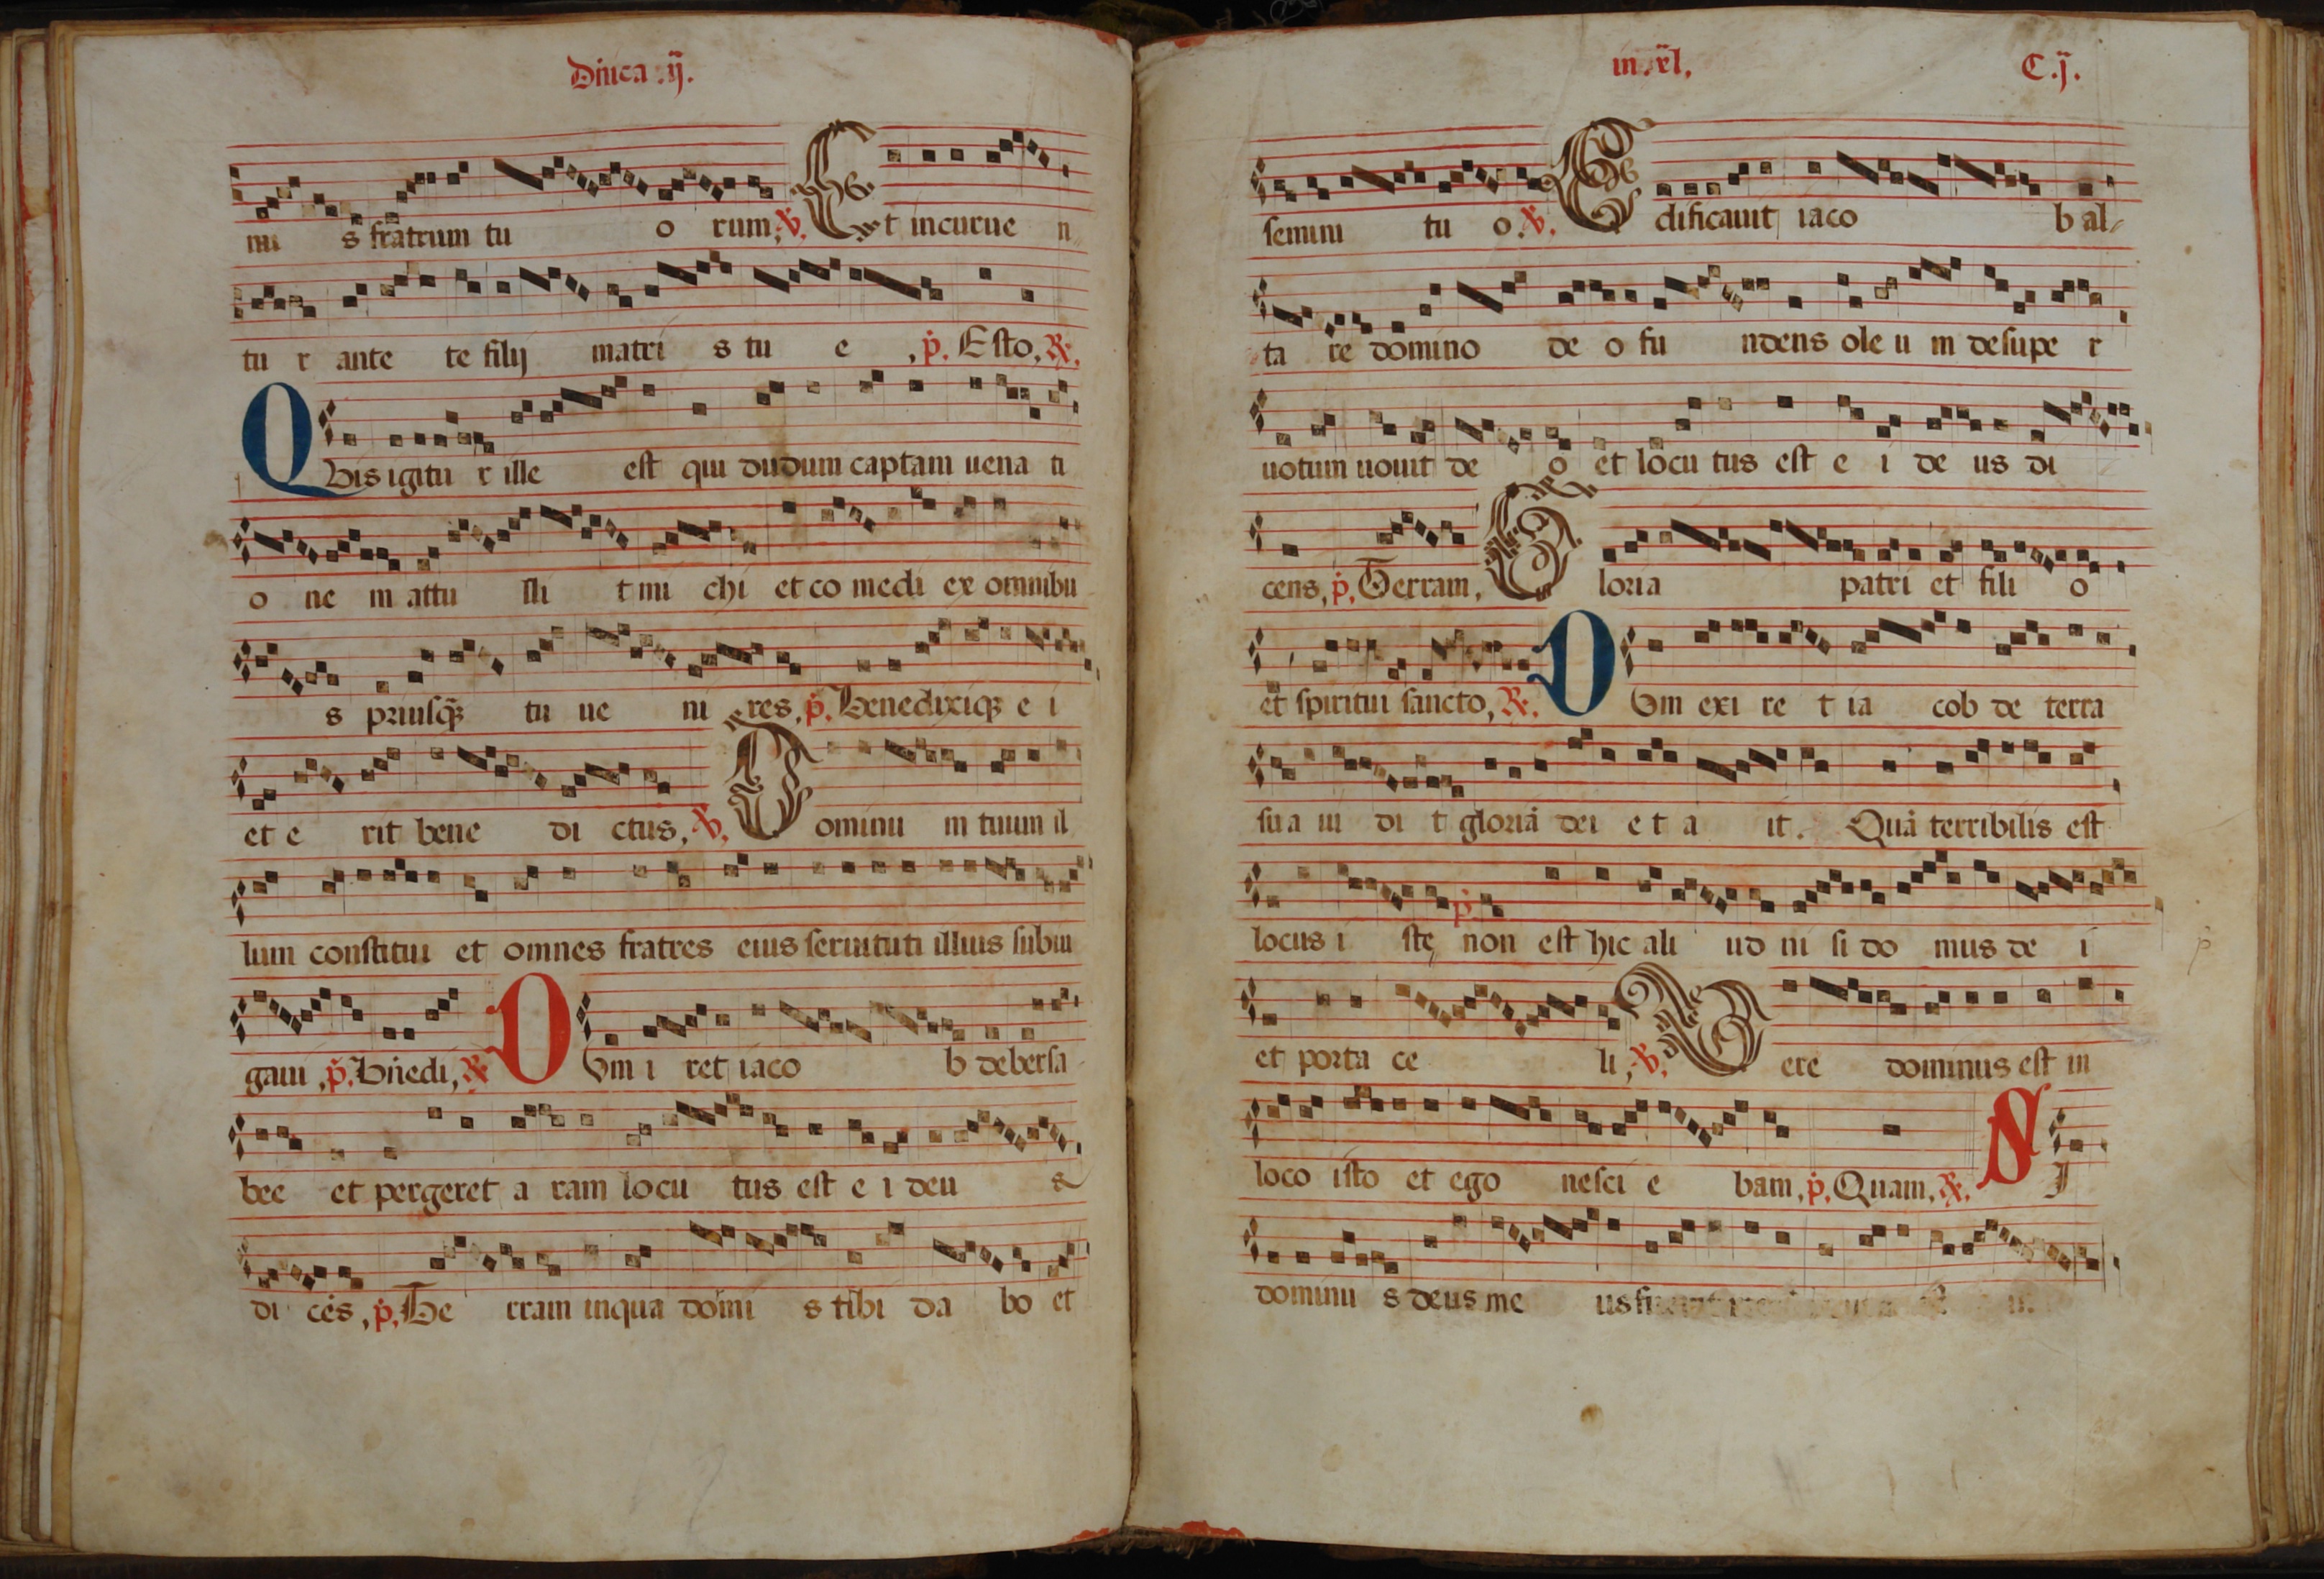 Dn̄ica .ij.
mi s fratrum tu o rum, ℣. Et incurue n
tu r ante te filij matri s tu e , p̄. Esto, ℟.
Qvis igitu r ille est qui dudum captam uena ti
o ne m attu sti t mi chi et co medi ex omnibu
s priusq̄ꝫ tu ue ni res, p̄. Benedixiqꝫ e i
et e rit bene di ctus, ℣. Dominu m tuum il
lum constitui et omnes fratres eius seruituti illius subiu
gaui , p̄. Bn̄edi, ℟. Dvm i ret iaco b de bersa
bee et pergeret a ram locu tus est e i deu s
di cēs , p̄. Te rram inqua dormi s tibi da bo et
in .xl.
C.ij.
semini tu o. ℣. Edificauit iaco b al-
ta re domino de o fu ndens ole u m desupe r
uotum uouit de o et locu tus est e i de us di
cens, p̄. Terram, Gloria patri et fili o
et spiritui sancto, ℟. Dvm exi re t ia cob de terra
su a ui di t gloriā dei e t a it. Quā terribilis est
locus i ste non est hic ali ud ni si do mus de i
et porta ce li, ℣. Vere dominus est in
loco isto et ego nesci e bam, p̄. Quam, ℟. SJ
dominu s deus me us